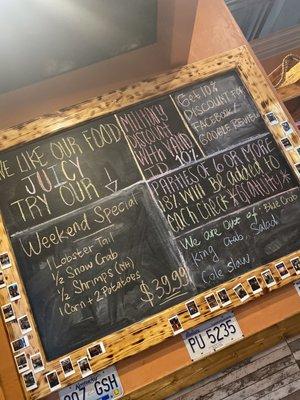 WE LIKE OUR FOOD
JUICY
TRY OUR ↓
MILITARY
DISCOUNT
WITH VALID
10%
Get 10%
DISCOUNT FOR
FACEBOOK/
GOOGLE REVIEW
PARTIES OF 6 OR MORE
18% Will BE added to
each check *GRATUITY*
Weekend Special
1 Lobster Tail
1/2 Snow Crab
1/2 Shrimps (NH)
1 Corn + 2 Potatoes
$39.99
We are Out of: Blue Crab
King Crab, Salad
Cole Slaw
PU 5235
807 GSH